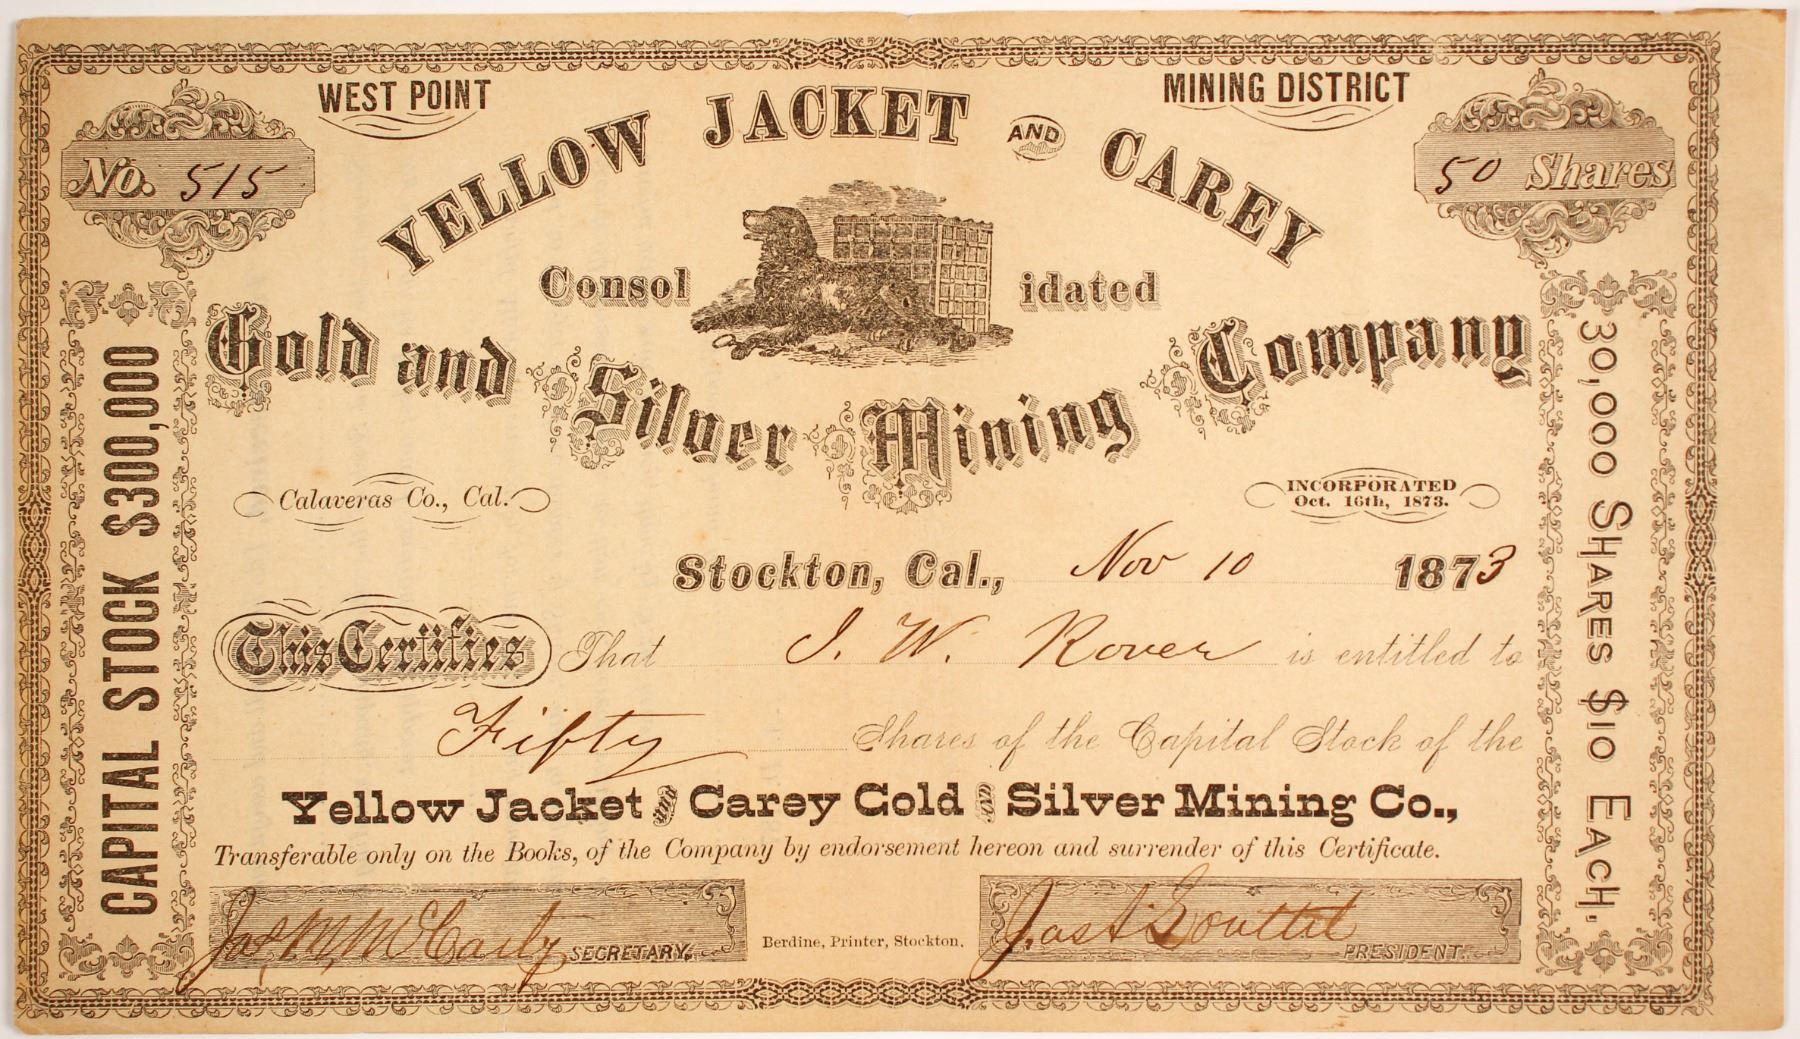 WEST POINT
MINING DISTRICT
No. 515
50 Shares
YELLOW JACKET AND CAREY
Consol idated
Gold and Silver Mining Company
Calaveras Co., Cal.
INCORPORATED
Oct. 16th, 1873.
CAPITAL STOCK $300,000
30,000 SHARES $10 EACH.
Stockton, Cal., Nov 10 1873
This Certifies That J. W. Rover is entitled to
Fifty Shares of the Capital Stock of the
Yellow Jacket and Carey Gold and Silver Mining Co.,
Transferable only on the Books, of the Company by endorsement hereon and surrender of this Certificate.
Jas. M. McCarty SECRETARY.
Berdine, Printer, Stockton.
Jas A PRESIDENT.